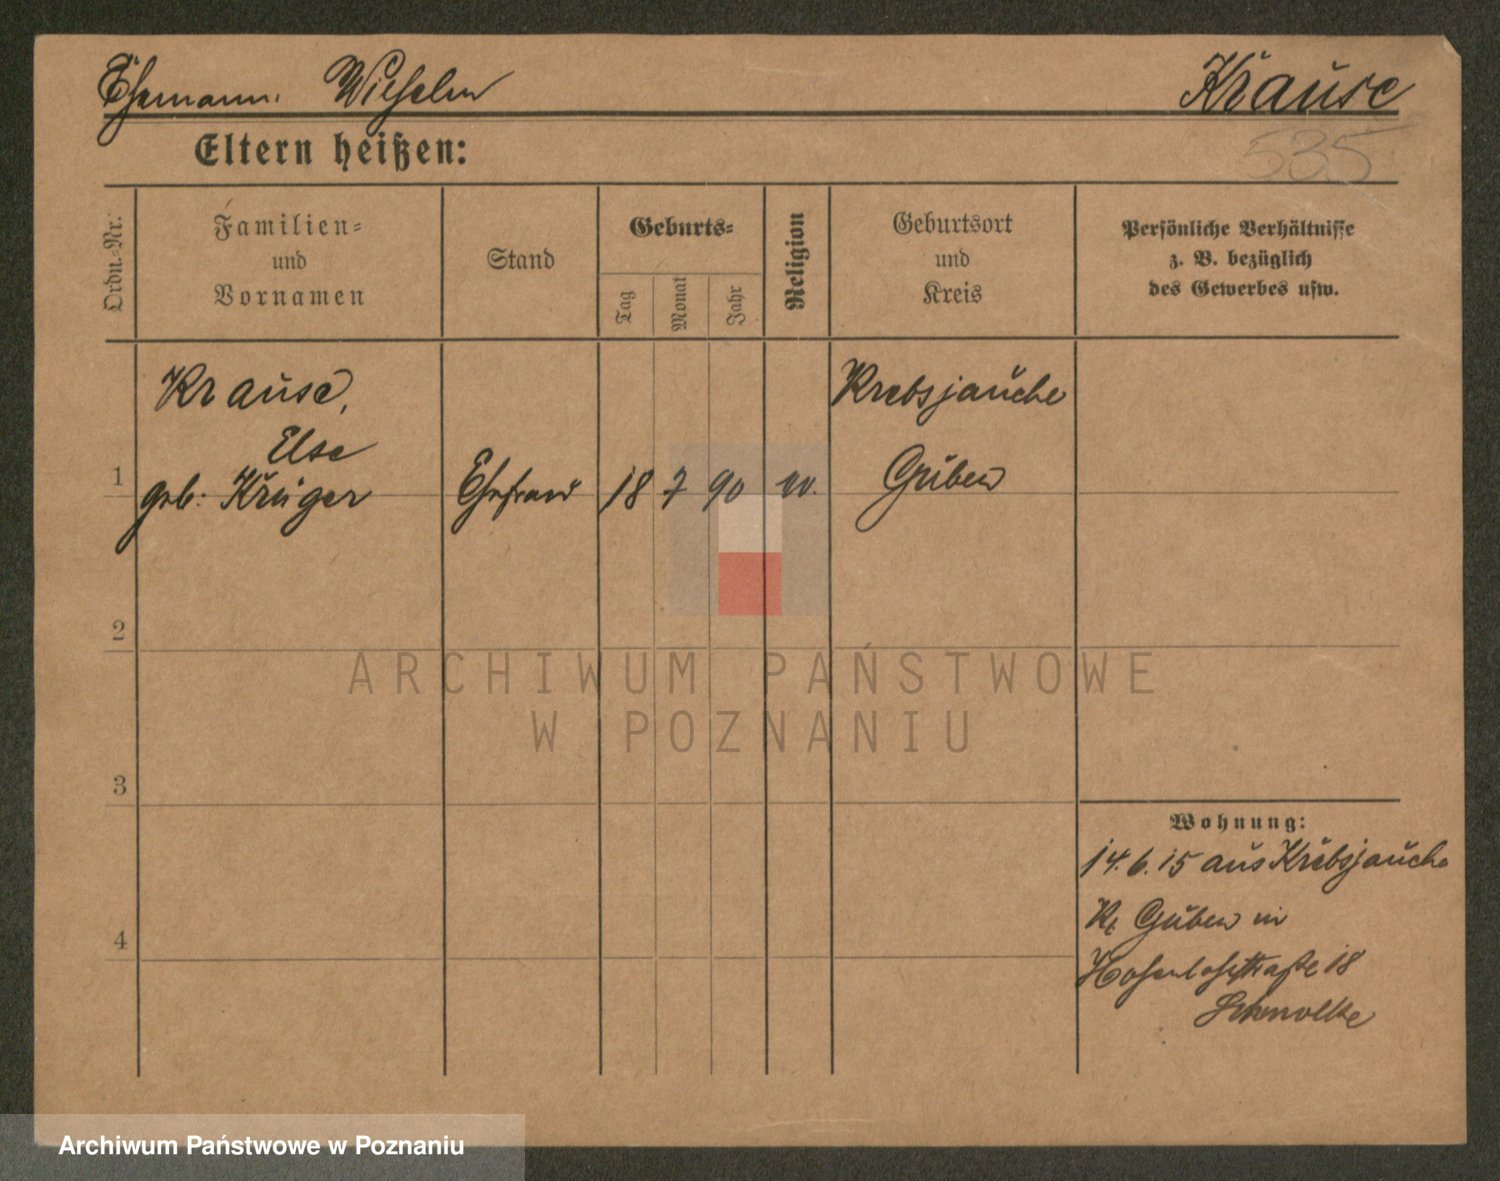 Ehemann: Wilhelm Krause
Eltern heißen: 535
Ordn.-Nr.
Familien-
und
Vornamen
Stand
Geburts-
Tag
Monat
Jahr
Religion
Geburtsort
und
Kreis
Persönliche Verhältnisse
z. B. bezüglich
des Gewerbes usw.
Krause,
Else
1 geb: Krüger Ehefrau 18 7 90 ev.
Krebsjauche
Guben
2
3
4
ARCHIWUM PAŃSTWOWE
W POZNANIU
Wohnung:
14.6.15 aus Krebsjauche
Kr Guben in
Hohenlohestraße 18
Schmolke
Archiwum Państwowe w Poznaniu